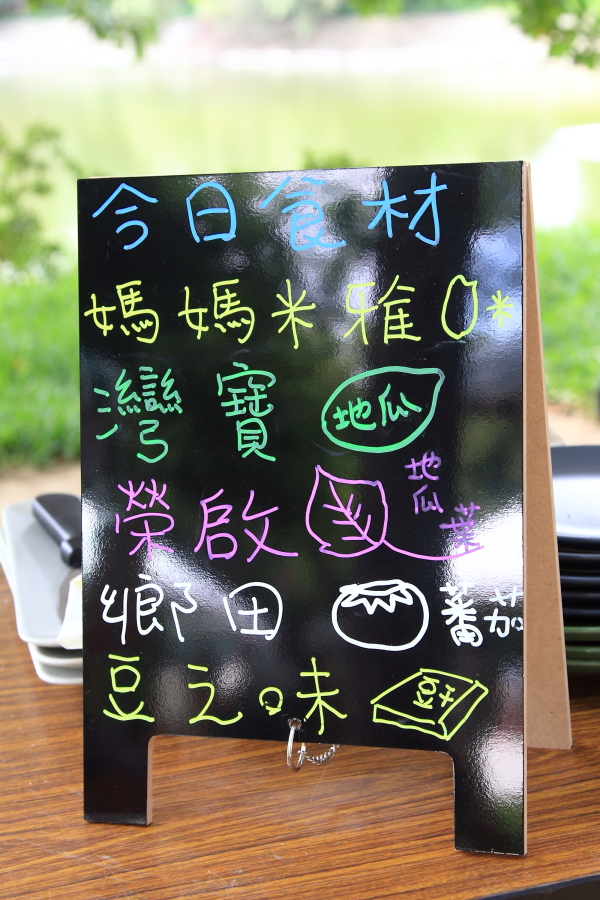 今日食材
媽媽米雅 米
灣寶 地瓜
榮啟 地瓜葉
鄉田 蕃茄
豆之味 豆干